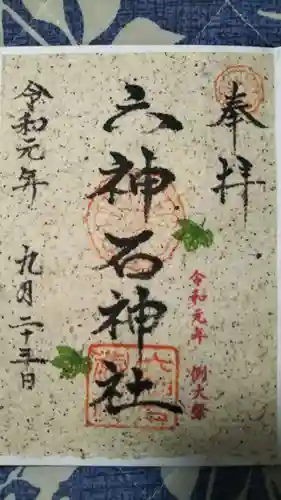 奉拝
六神石神社
令和元年 例大祭
令和元年
九月二十五日